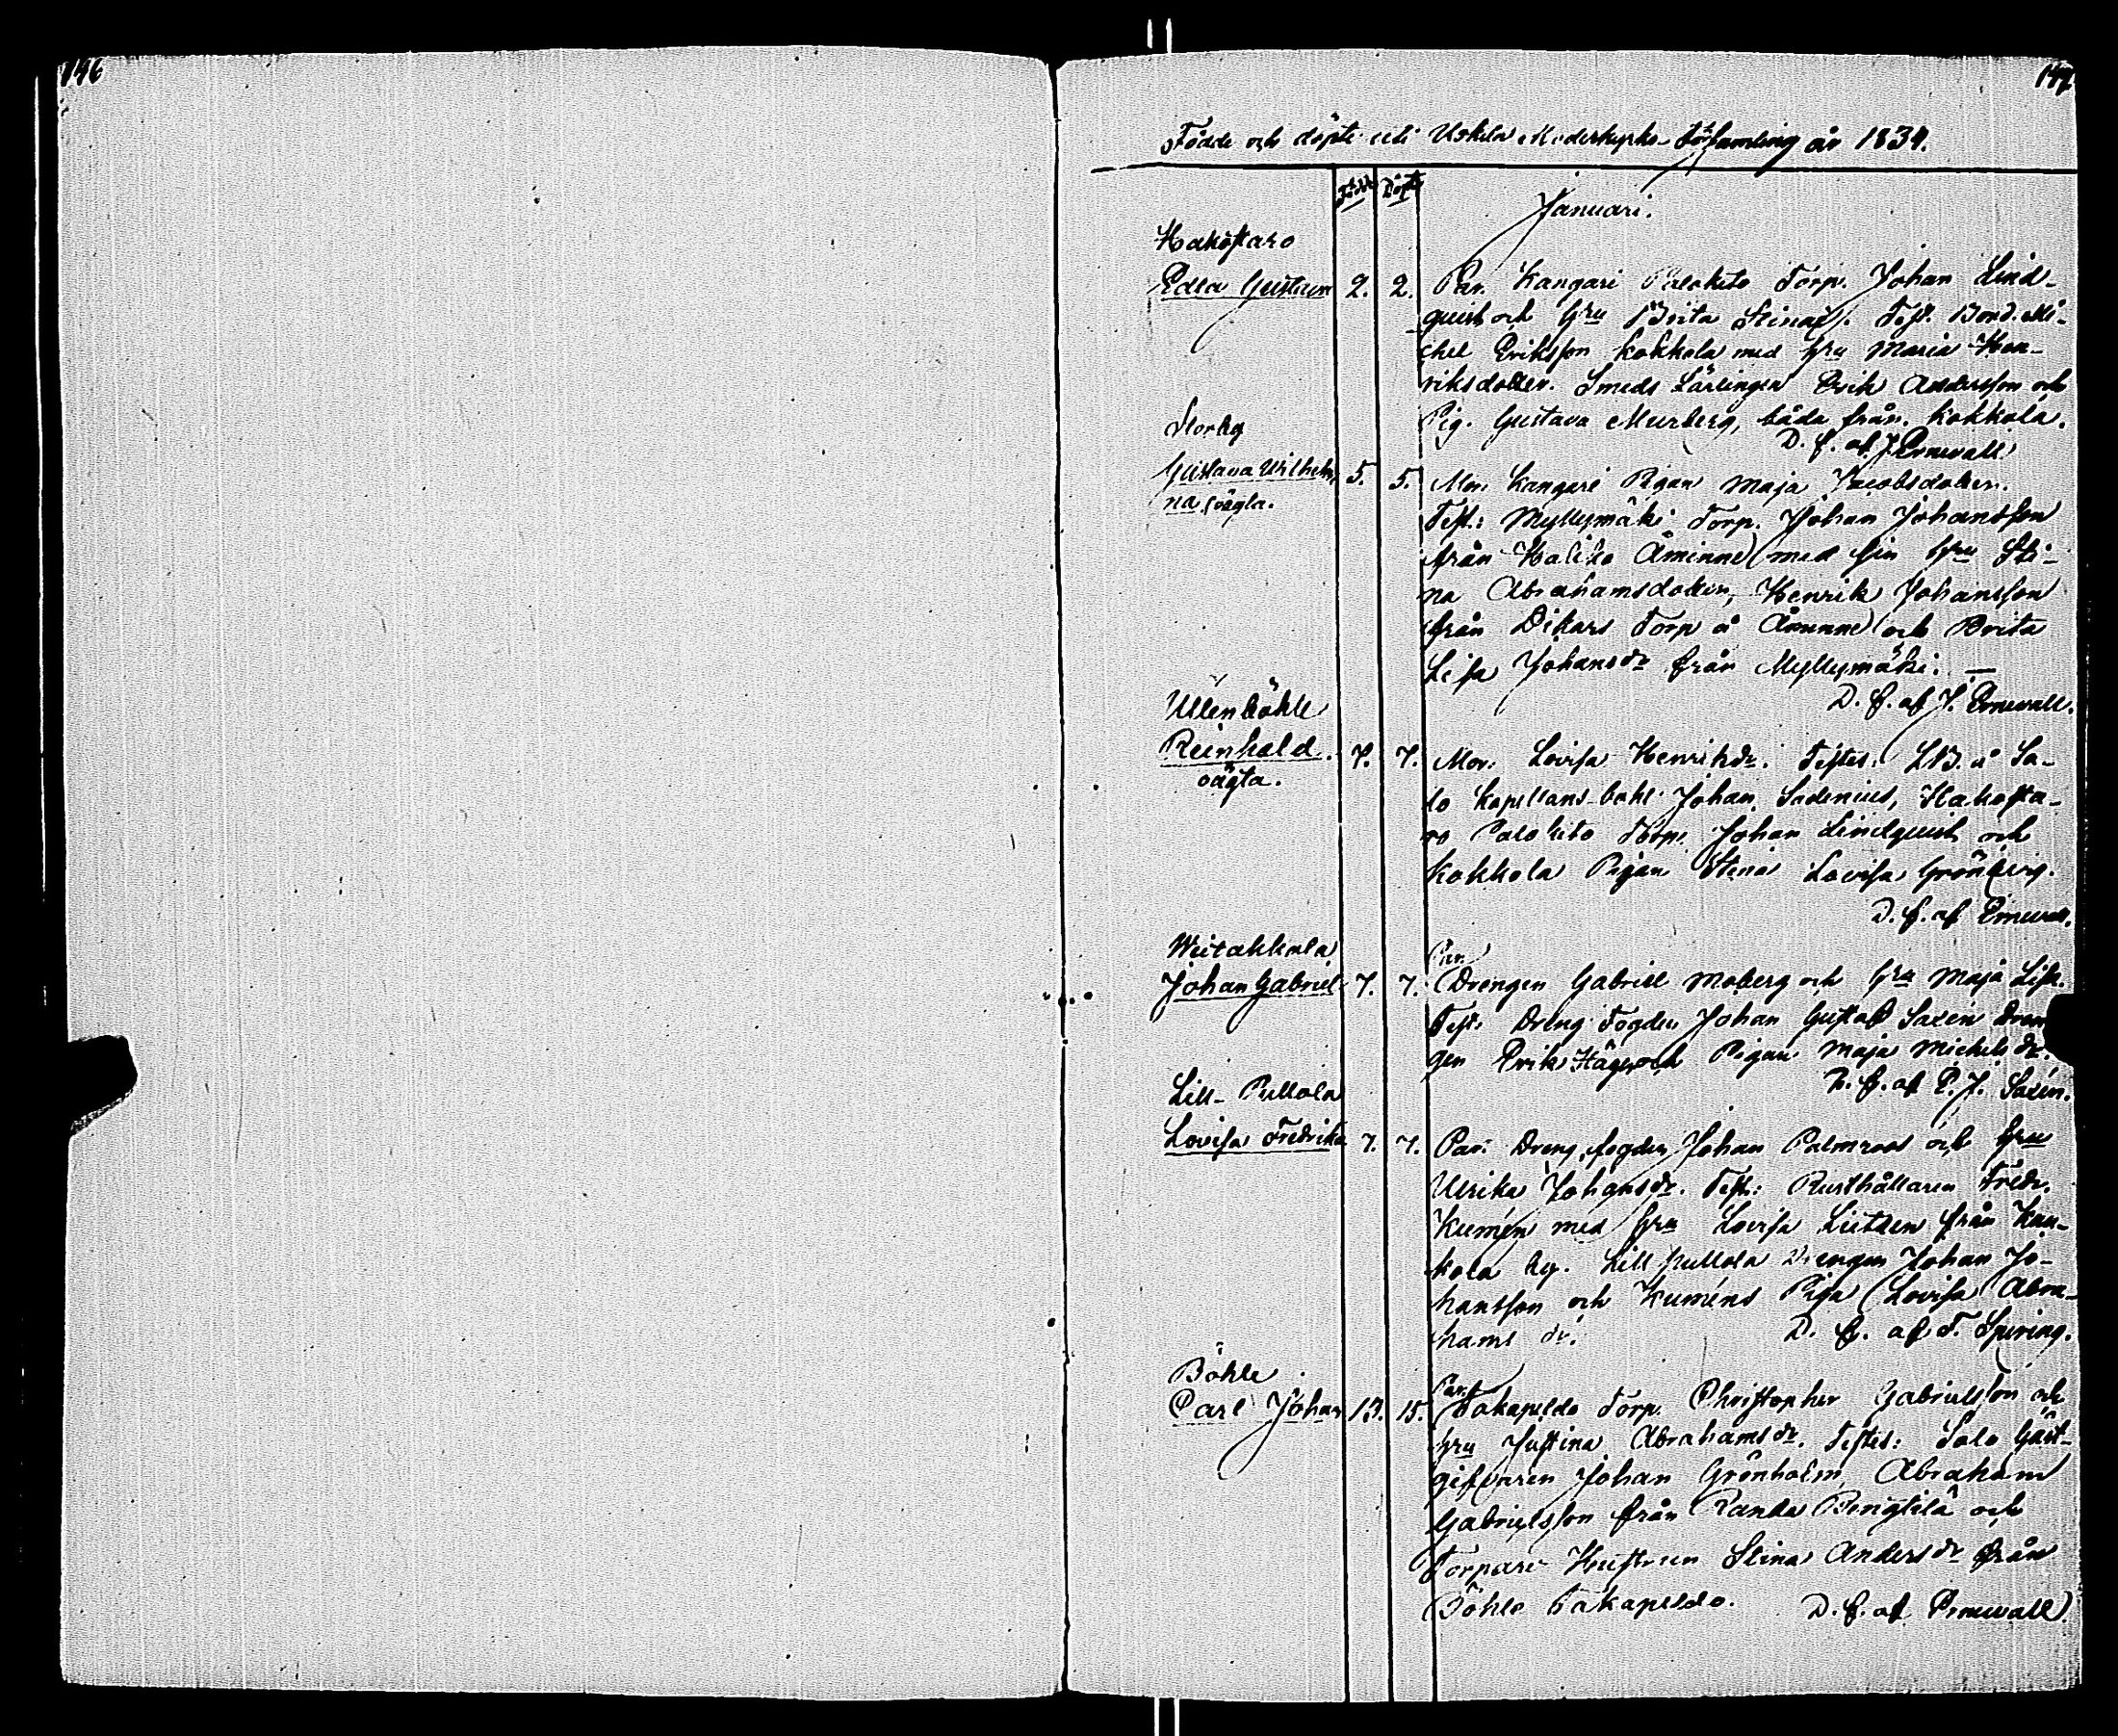 146
147.
Födde och döpte uti Uskela Moderkyrko-Församling år 1834.
Född Döpt
Januari.
Hakostaro
Edla Gustava 2. 2. Par. Kangari Palokito Torp. Johan Lind-
quist och hru Brita Stina. Test. Bond. Mi-
chel Eriksson Kokkola med hru Maria Hen-
riksdotter. Smeds Lärlingen Erik Andersson och
Pig. Gustava Murberg, båda från Kokkola.
D. f. af J. Ernwall
Storby
Gustava Wilhelmi 5. 5. Mor. Kangari Pigan Maja Jacobsdotter.
na oägta. Test.: Myllymäki Torp. Johan Johansson
från Haliko Åminne med sin hru Sti-
na Abrahamsdotter, Henrik Johansson
från Dikars Torp å Åminne och Brita
Lisa Johansdr från Myllymäki. —
D. f. af J. Ernwall.
Ullenböhle
Reinhold. 7. 7. Mor. Lovisa Henriksdr. Testes: å Sa-
oägta. lo Kapellans-bohl Johan Sadenius, Hakosta-
ro Palokito Torp. Johan Lindquist och
Kokkola Pigan Stina Lovisa Grönberg.
D. f. af Ernwall.
Weitakkala Par.
Johan Gabriel 7. 7. Drengen Gabriel Moberg och hru Maja Lisa.
Test: Dreng Fogden Johan Gustaf Saxén Dren
gen Erik Häger och Pigan Maja Michelsdr.
D. f. af P. J. Saxén.
Lill-Pullola
Lovisa Fredrika 7. 7. Par. Dreng fogden Johan Palmroos och hru
Ulrika Johansdr. Test.: Rusthållaren Fredr.
Kumén med hru Lovisa från Kau-
kola by. Lill Pullola Drengen Johan Jo-
hansson och Kuméns Piga Lovisa Abra-
hams dr. D. f. af F. Spiring.
Böhle Par.
Carl Johan 13. 15. Takapeldo Torp. Christopher Gabrielsson och
hru Justina Abrahamsdr. Testes: Salo Gäst-
gifvaren Johan Grönholm, Abraham
Gabrielsson från Randa Bengtilä och
Torpare Hustrun Stina Andersdr från
Böhle Takapeldo. D. f. af Ernwall